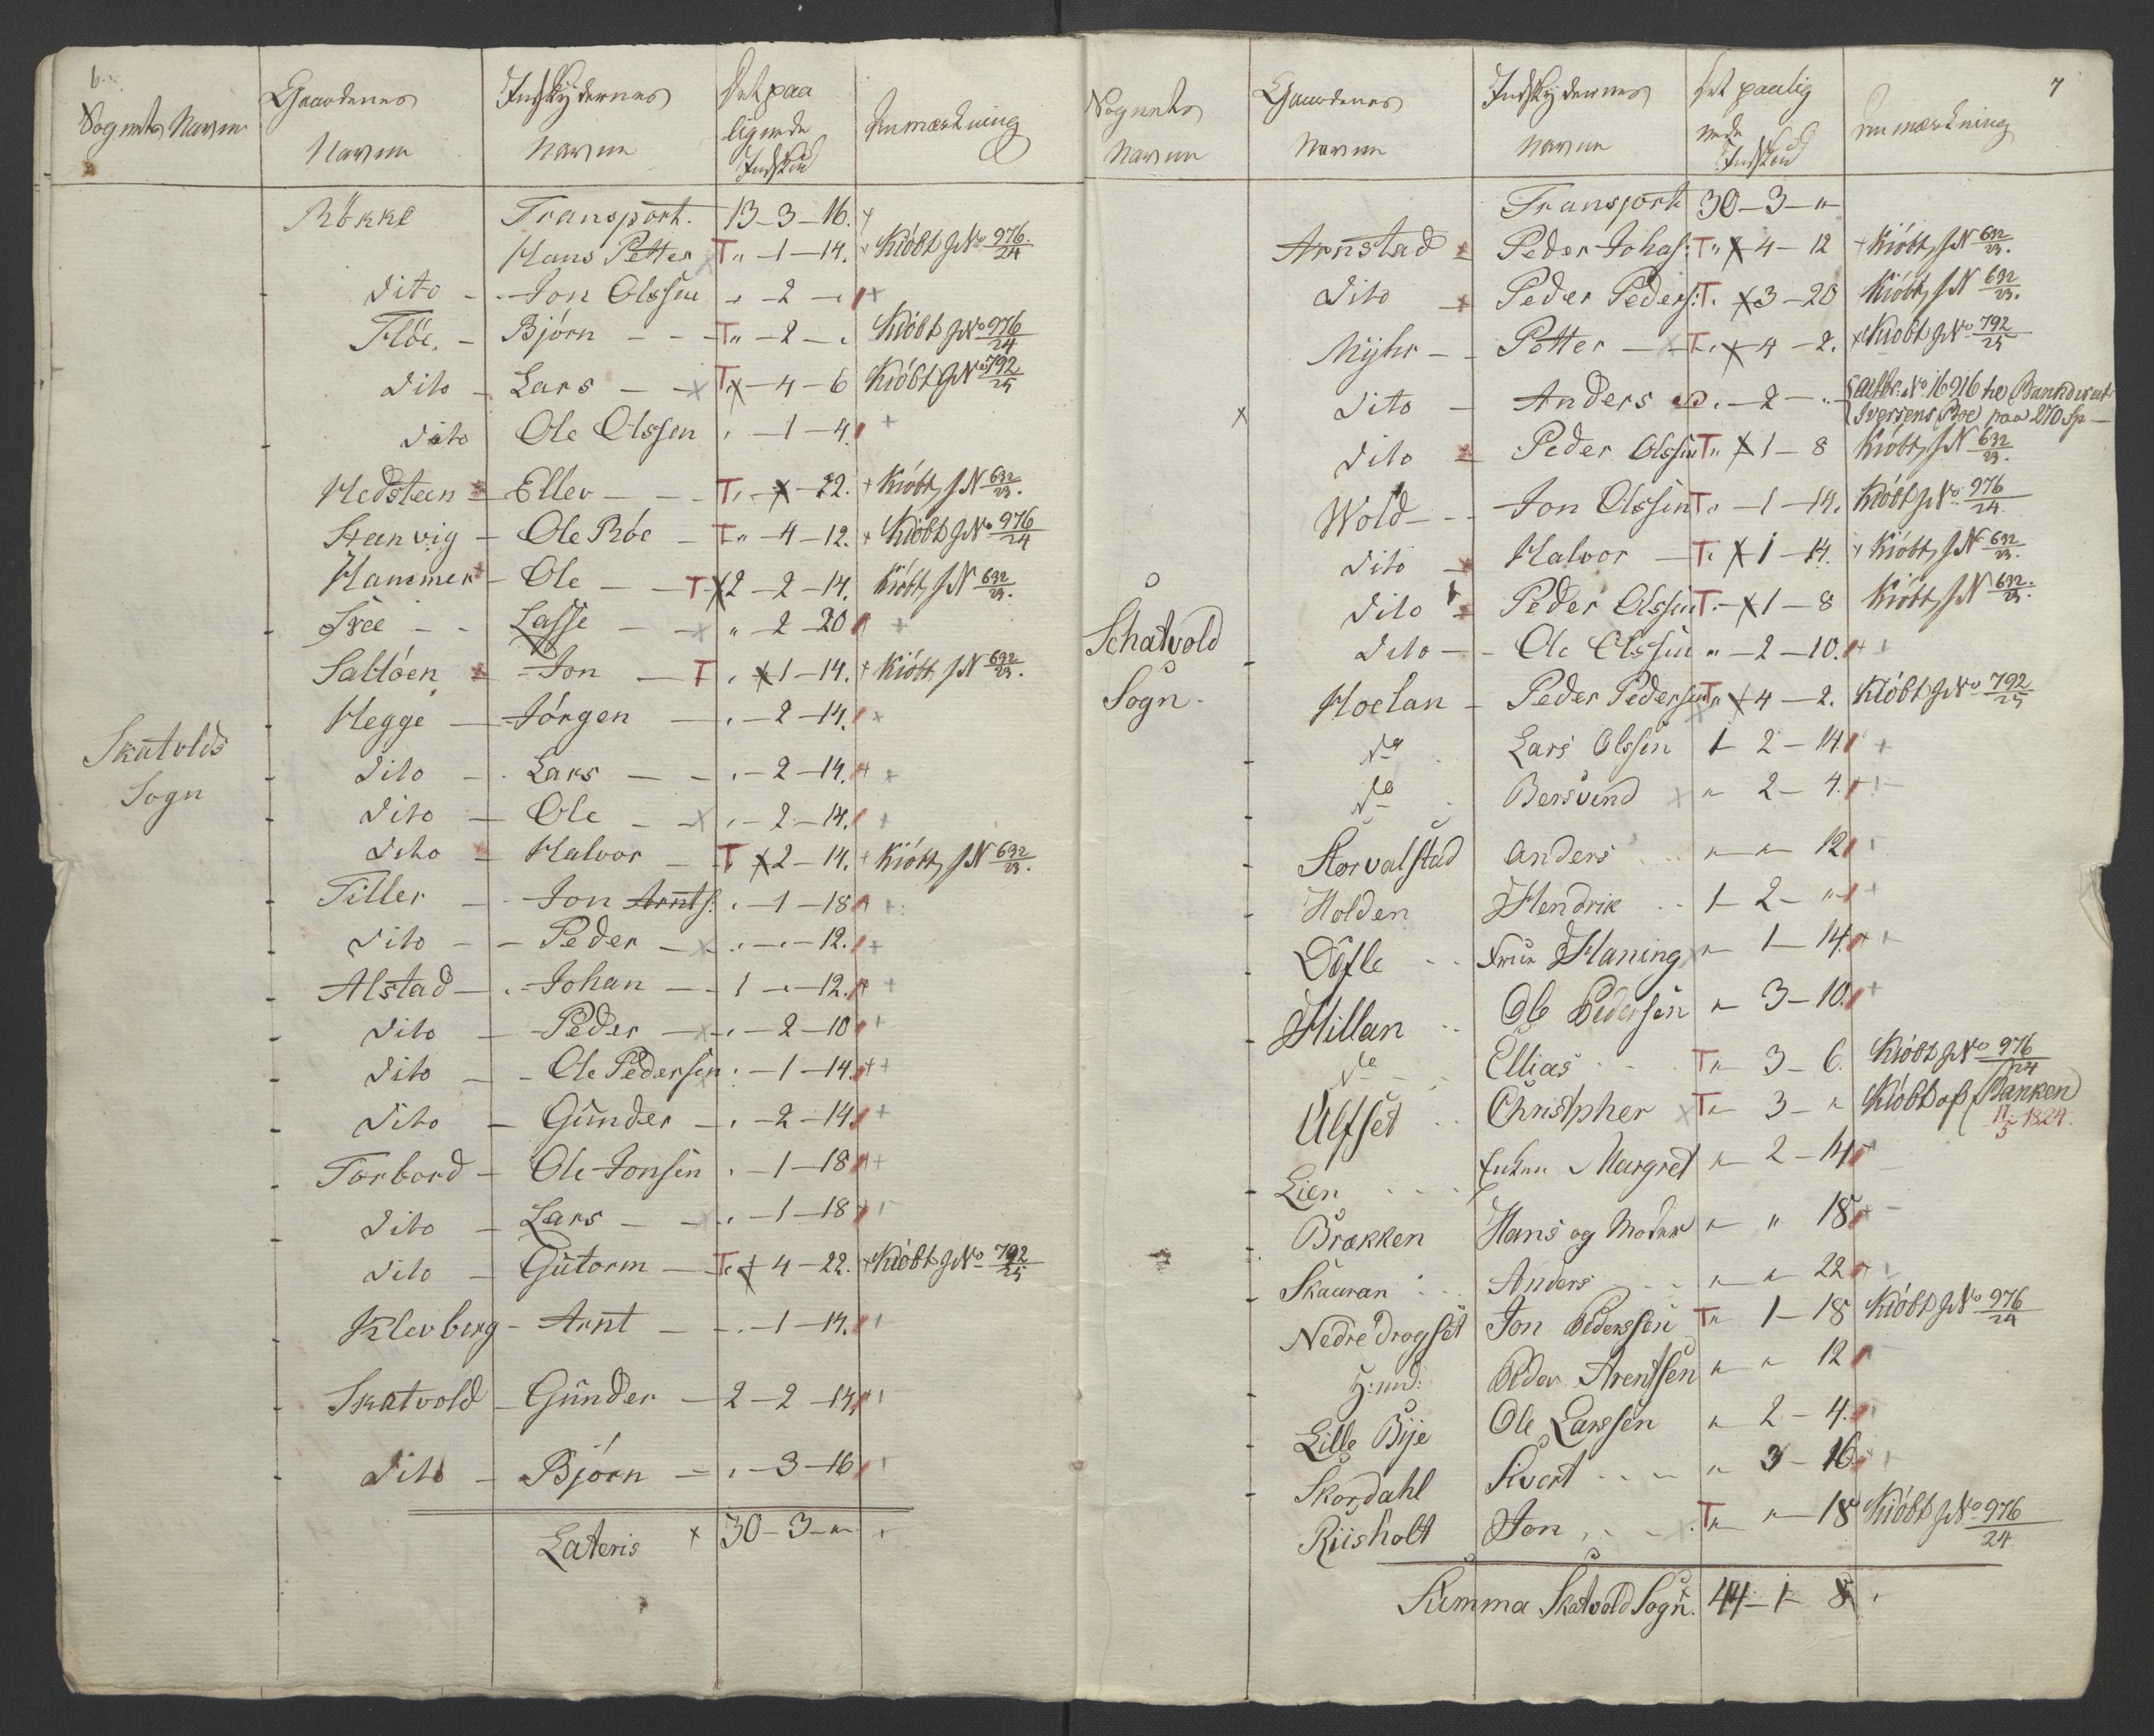 6.
Sognets Navn
Gaardenes Navne
Indskydernes Navne
Det paa ligende Indskud
Anmærkning
Transport. 13-3-16.
Rökke Hans Petter T " -1-14. Kiöbt J No 976/24
Dito - Jon Olssen " -2 - "
Flöe. - Björn - T " -2 - " Kiöbt J No 976/24
Dito - Lars - T " -4-6 Kiöbt J No 792/25
Dito Ole Olssen " -1-4.
Hedsteen - Ellev - T " - " -22. Kiöbt J N 632/23.
Steenvig - Ole Röe - T " -4-12. Kiöbt J No 976/24
Hammer - Ole - T 2-2-14. Kiöbt J N 632/23.
Sree - Lasse - " -2-20
Saltöen - Jon - T " 1-14. Kiöbt J N 632/23.
Hegge - Jörgen - " -2-14.
Dito - Lars - " -2-14.
Skatvolds Sogn
Dito - Ole - " -2-14.
Dito - Halvor - T 2-14. Kiöbt J N 632/23.
Tiller - Jon Arnts: " -1-18
Dito - Peder - " - " -12.
Alstad - Johan - 1 - " -12.
Dito - Peder - " -2-10
Dito - Ole Pedersen " -1-14.
Dito - Gunder - " -2-14.
Forbord - Ole Jonsen " -1-18
Dito - Lars - " -1-18
Dito - Gutorm - T " 4-22. Kiöbt J No 792/25
Klevberg - Arnt - " -1-14.
Skatvold - Gunder - 2-2-14.
Dito - Björn - " -3-16
Lateris 30-3- "
7
Sognets Navne
Gaardenes Navne
Indskydernes Navne
Det paalignende Indskud
Anmærkning
Transport 30-3- "
Arnstad Peder Johas: T " 4-12 Kiöbt J N 632/23.
Dito Peder Peders: T " 3-20 Kiöbt J N 632/23.
Myhr - Petter - T " 4-2. Kiobt J No 792/25
Dito - Anders " -2- " No 16916 til Iversens paa 270 Sp
Dito Peder Olssen T " 1-8 Kiöbt J N 632/23.
Wold - Jon Olssen T " -1-14. Kiöbt J No 976/24.
Dito Halvor - T " 1-14. Kiöbt J N 632/23.
Dito Peder Olssen T " 1-8 Kiöbt J N 632/23.
Schatvold Sogn.
Dito - Ole Olssen " -2-10.
Hoelan - Peder Pedersen T " 4-2. Kiöbt J No 792/25
Do Lars Olssen 1-2-14
Do Bersvend " 2-4.
Storvalstad Anders " - " 12
Holden Hendrik 1-2- "
Döfle Frue Haning " 1-14.
Hillan Ole Pedersen " 3-10.
Do Ellias T " 3-6. Kiöbt J No 976/24
Ulfset Christpher T " 3- " Kiöbt af Banken 11/5 1824.
Lien Enken Margret " 2-14
Brækken Hans og Moder " " 18
Skauran Anders " - " 22
Nedre drogset Jon Pederssen T " 1-18 Kiöbt J No 976/24
Peder Arentsen " " 12
Lille Bije Ole Larssen " 2-4.
Skordahl Sivert " 3-16
Riisholt Jon T " " -18 Kiöbt J No 976/24
Summa Skatvold Sogn. 44-1-8